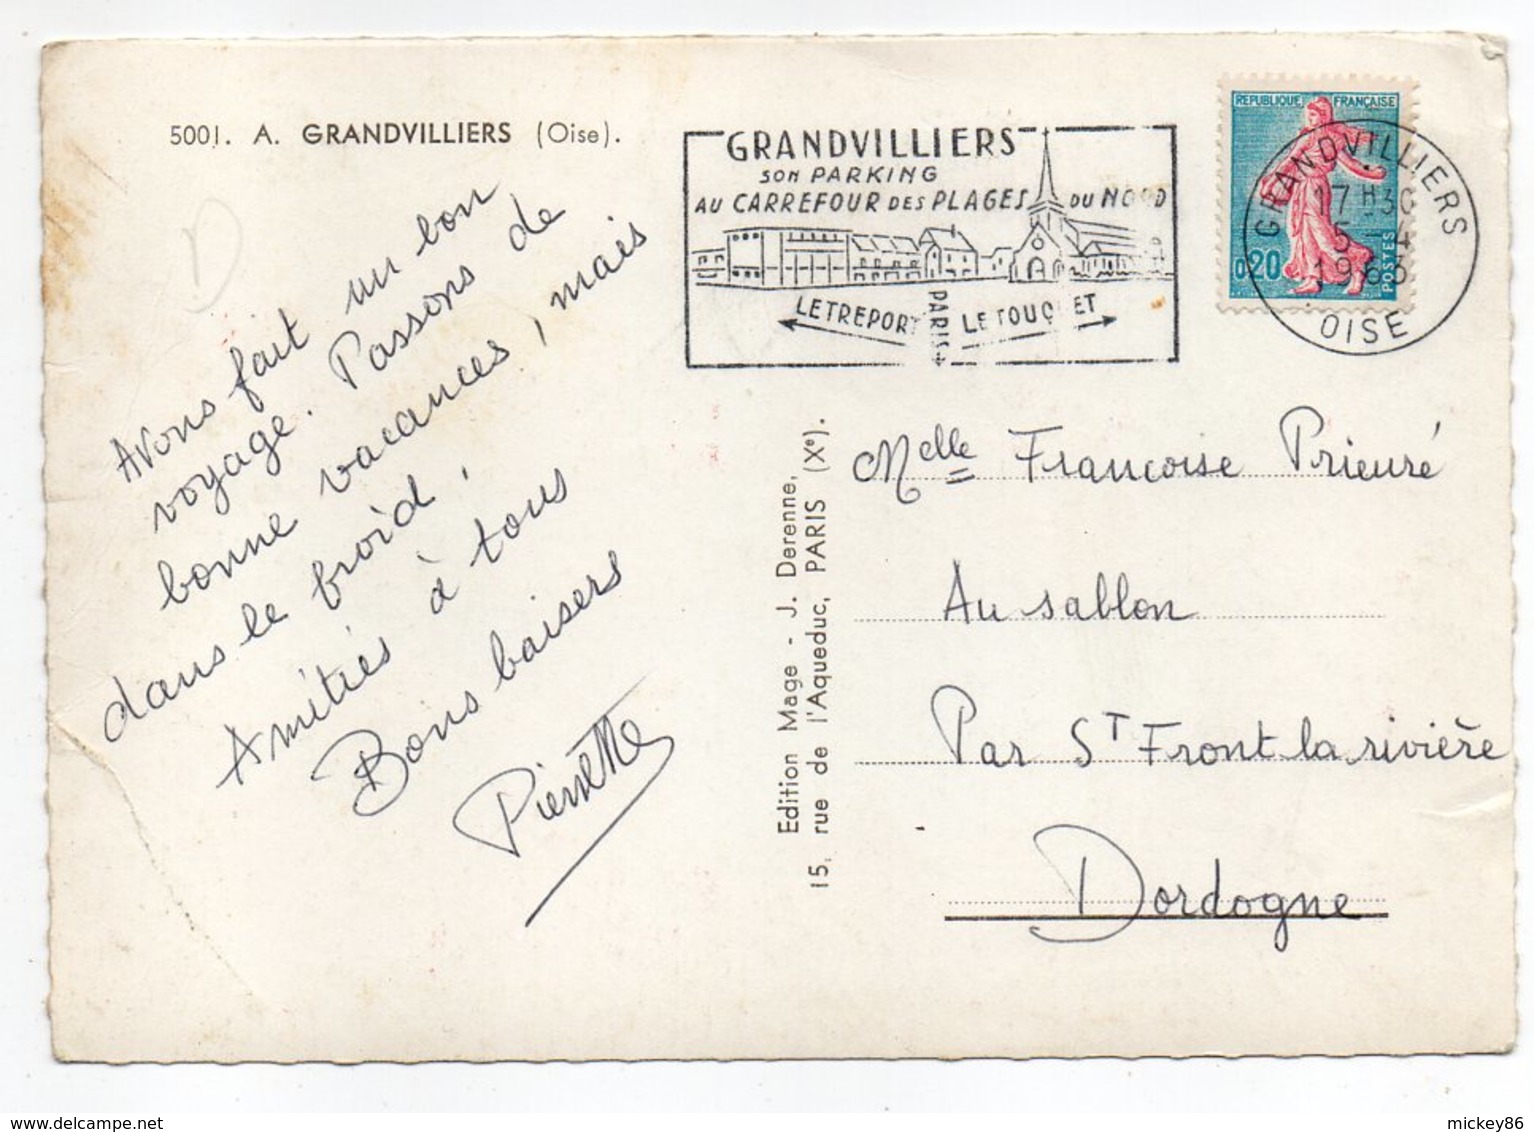 5001. A. GRANDVILLIERS (Oise).
Avons fait un bon
voyage. Passons de
bonne vacances, mais
dans le froid !
Amitiés à tous
Bons baisers
Pierrette
GRANDVILLIERS
SON PARKING
AU CARREFOUR DES PLAGES DU NORD
LE TREPORT PARIS LE TOUQUET
REPUBLIQUE FRANÇAISE
0,20
POSTES
GRANDVILLIERS
17H30
5-4
1963
OISE
Edition Mage - J. Derenne,
15, rue de l'Aqueduc, PARIS (Xe).
Melle Francoise Prieuré
Au sablon
Par ST Front la rivière
Dordogne
mickey86